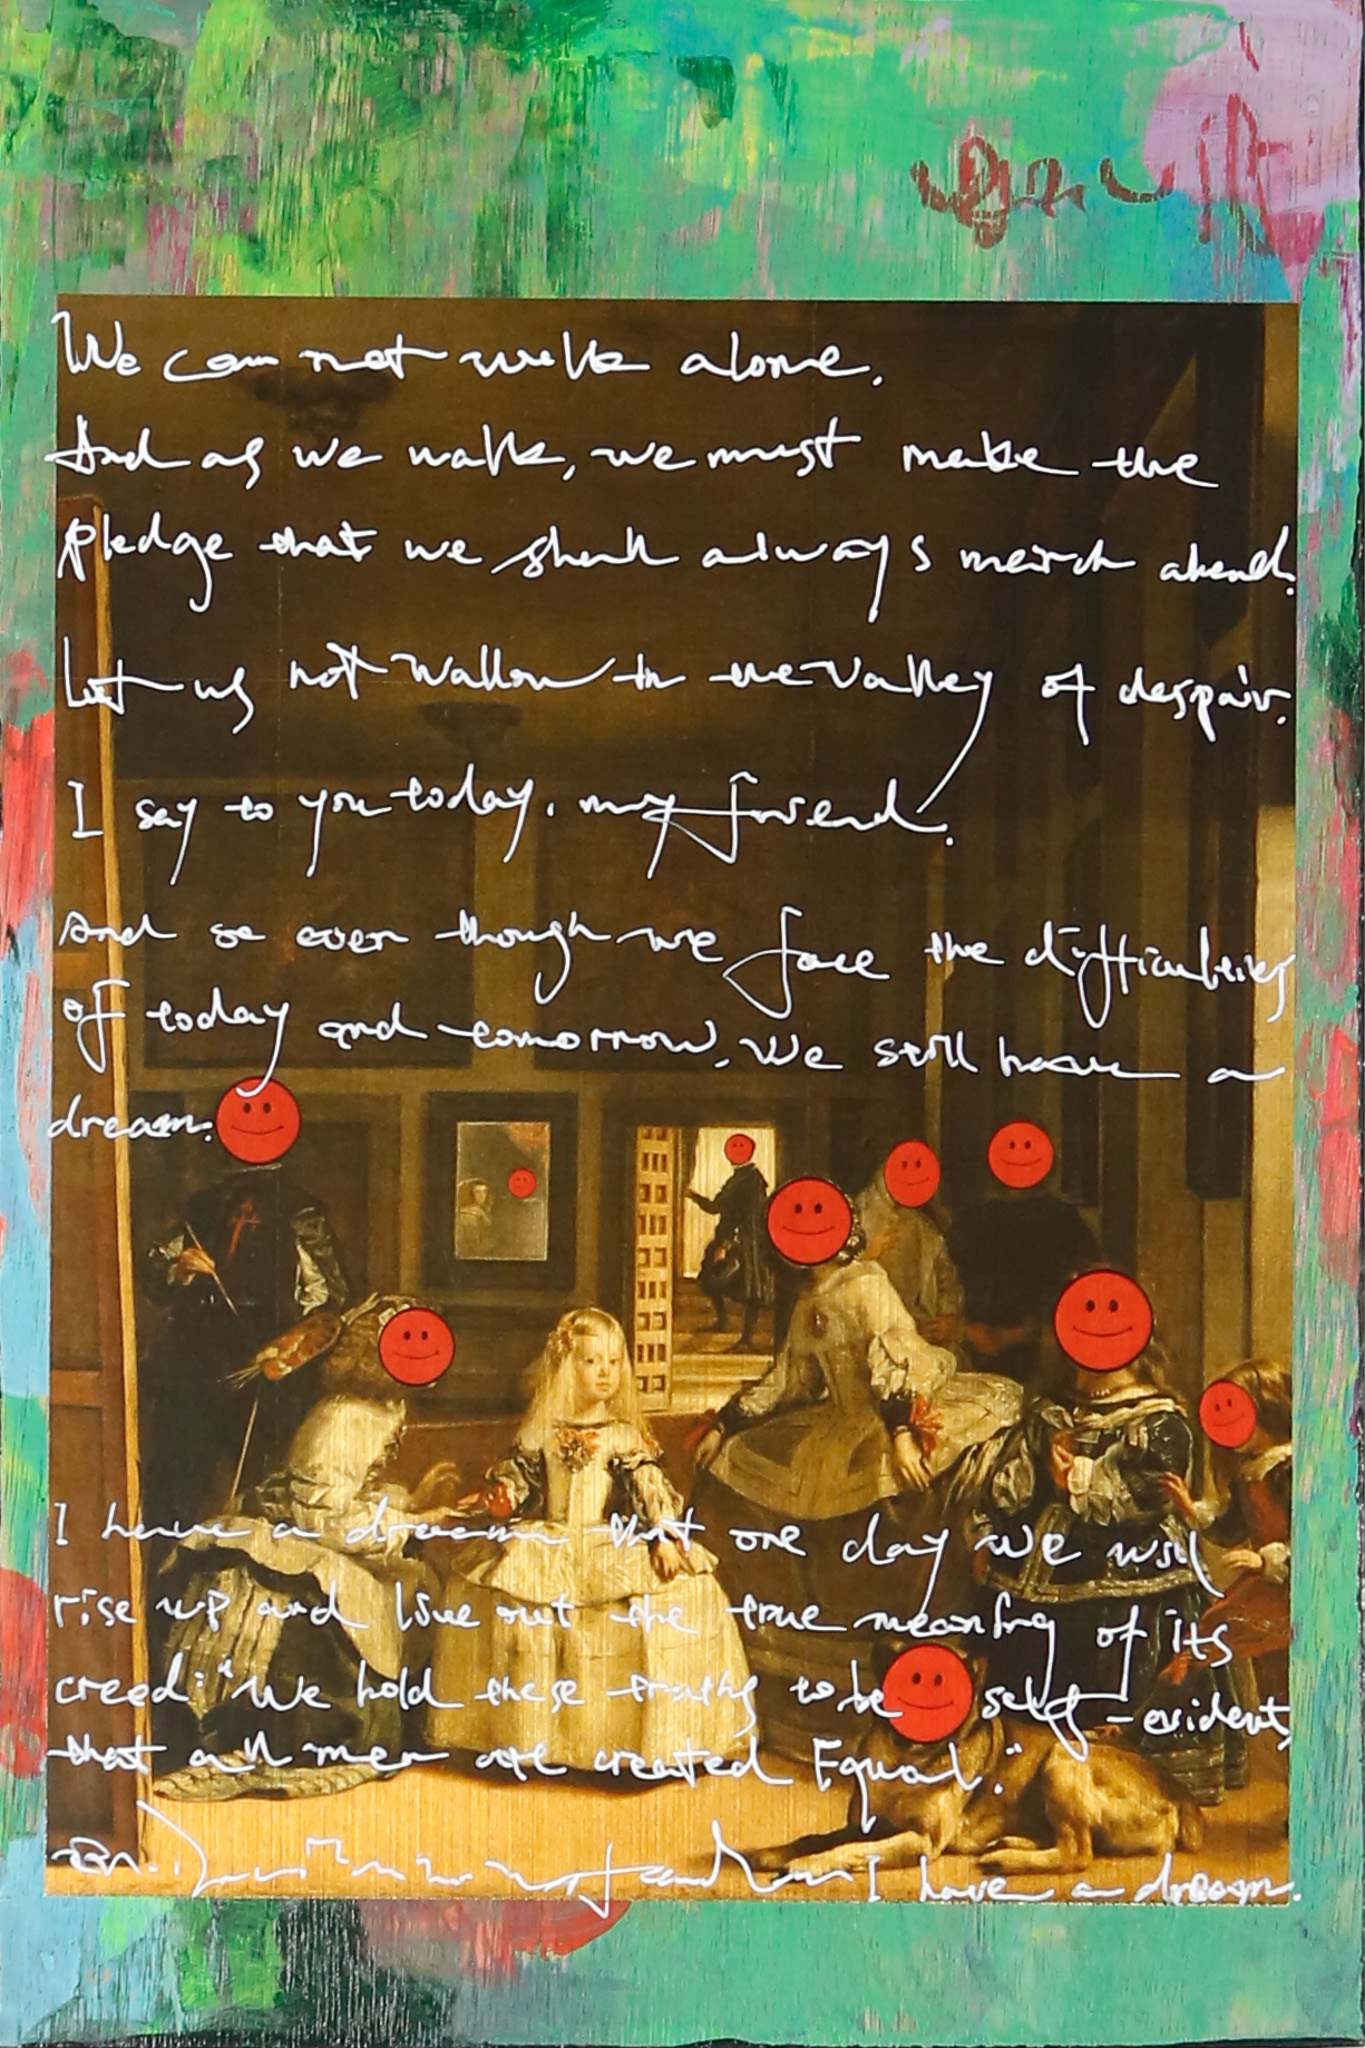 We can not walk alone.
And as we walk, we must make the
pledge that we shall always march ahead.
Let us not wallow in the valley of despair.
I say to you today, my friend.
And so even though we face the difficulties
of today and tomorrow, we still have a
dream.
I have a dream that one day we will
rise up and live out the true meaning of its
creed: "We hold these truths to be self-evident,
that all men are created Equal."
I have a dream.